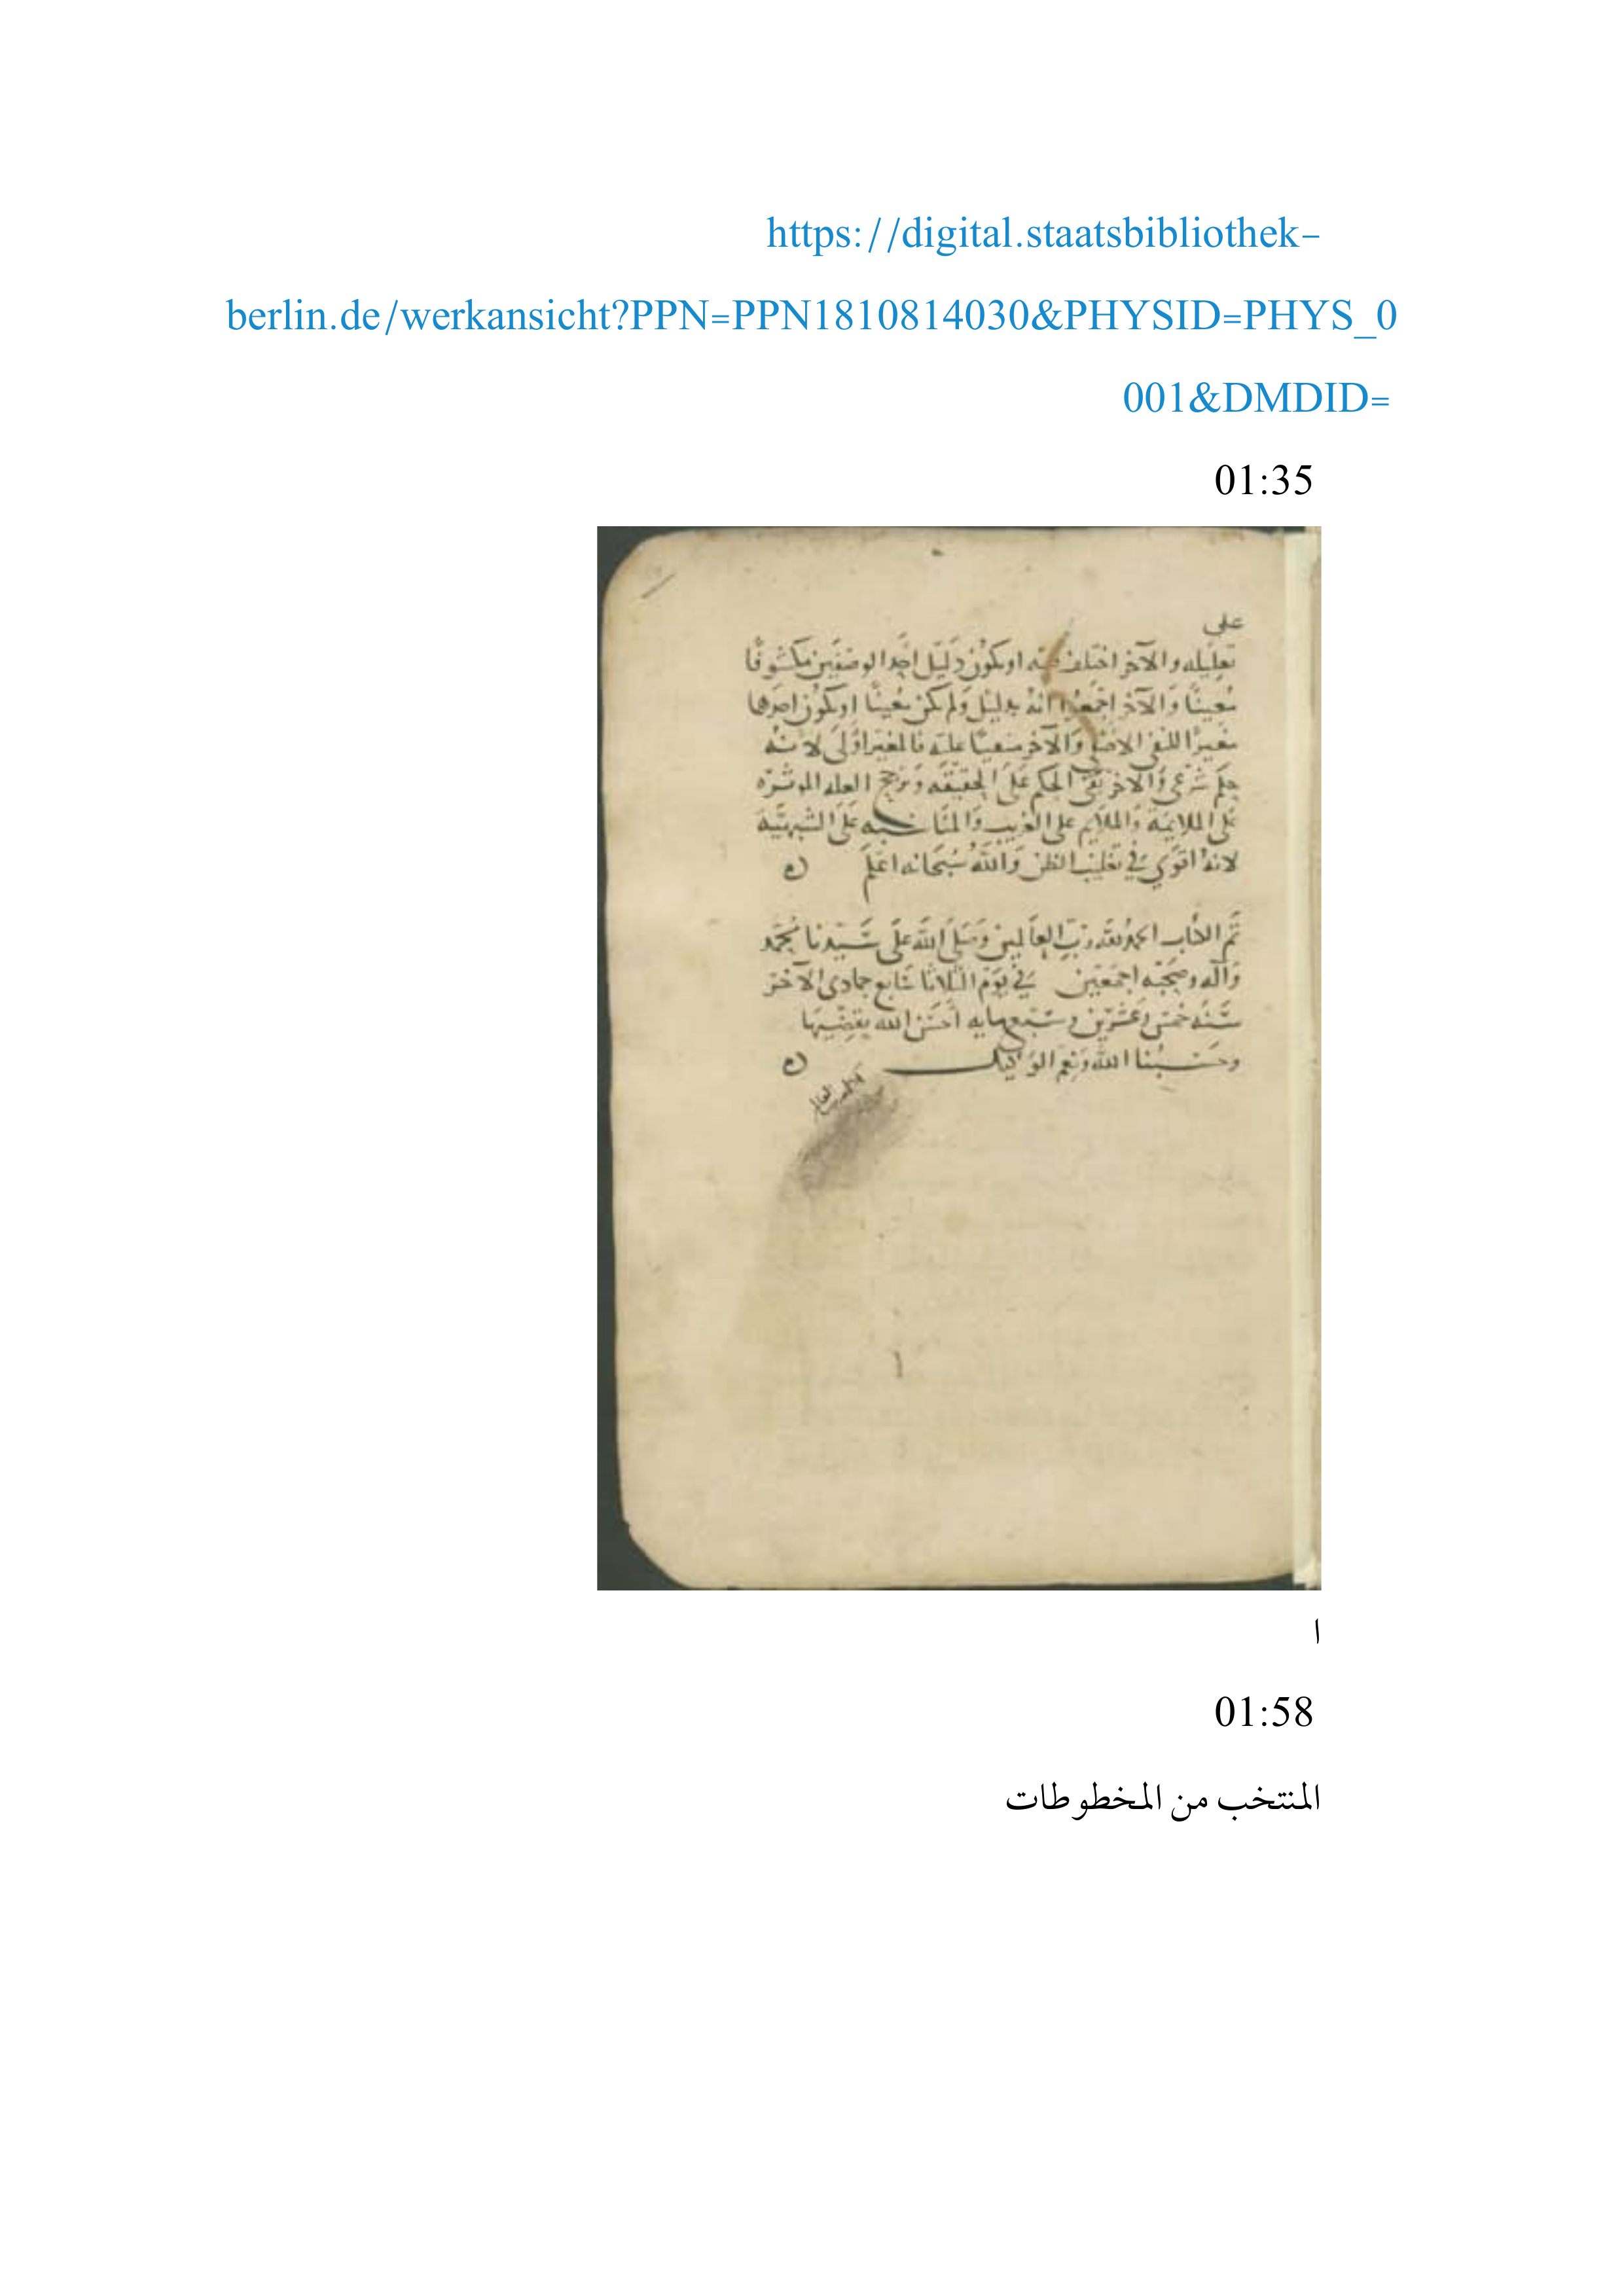 https://digital.staatsbibliothek-
berlin.de/werkansicht?PPN=PPN1810814030&PHYSID=PHYS_0
001&DMDID=
01:35
على
تعليله والآخر اختلف فيه او يكون دليل احد الوصفين مكشوفا
معينا والآخر اجمعوا انه بدليل ولم يكن معينا او يكون احدهما
مغيرا للنفي الاصلي والآخر مبقيا عليه فالمغير اولى لانه
حكم شرعي والاخر نفي الحكم على الحقيقه وترجح العله الموثره
على الملايمة والملايم على الغريب والمناسبه على الشبهية
لانه اقوي في تغليب الظن والله سبحانه اعلم
تم الكتاب الحمد لله رب العالمين وصلى الله على سيدنا محمد
وآله وصحبه اجمعين في يوم الثلاثا سابع جمادى الآخر
سنه خمس وعشرين وسبعمايه احسن الله تقضيها
وحسبنا الله ونعم الوكيل
ا
01:58
المنتخب من المخطوطات